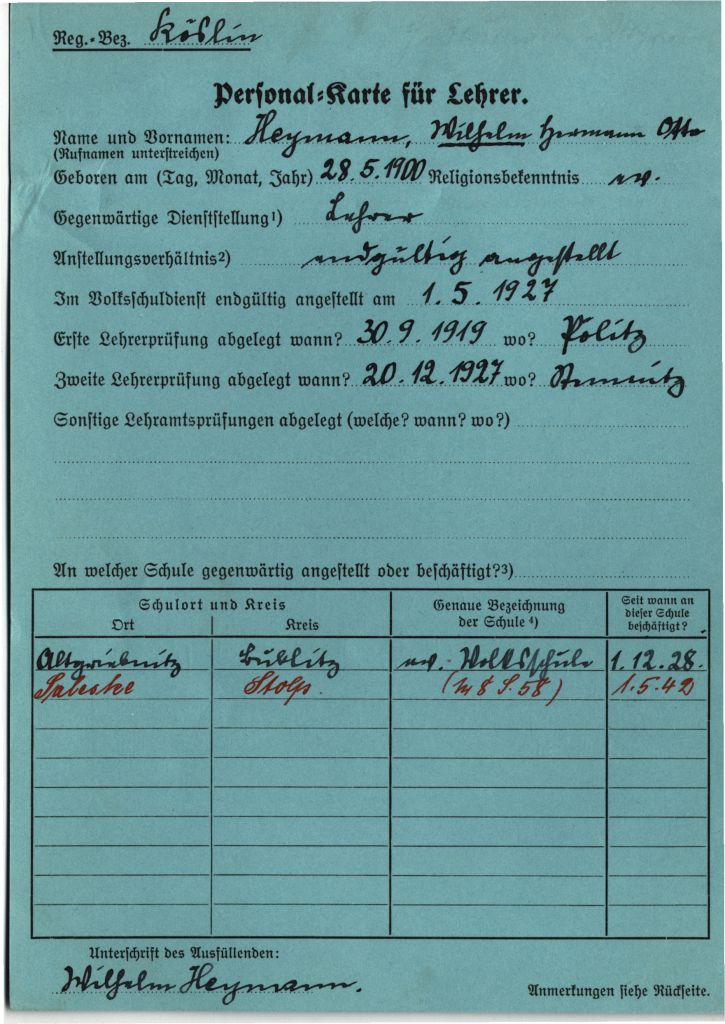 Reg.-Bez. Köslin
Personal-Karte für Lehrer.
Name und Vornamen: Heymann, Wilhelm Hermann Otto
(Rufnamen unterstreichen)
Geboren am (Tag, Monat, Jahr) 28.5.1900 Religionsbekenntnis ev.
Gegenwärtige Dienststellung¹) Lehrer
Anstellungsverhältnis²) endgültig angestellt
Im Volksschuldienst endgültig angestellt am 1.5.1927
Erste Lehrerprüfung abgelegt wann? 30.9.1919 wo? Pölitz
Zweite Lehrerprüfung abgelegt wann? 20.12.1927 wo?
Sonstige Lehramtsprüfungen abgelegt (welche? wann? wo?)
An welcher Schule gegenwärtig angestellt oder beschäftigt?³)
Schulort und Kreis
Ort Kreis
Genaue Bezeichnung der Schule ⁴)
Seit wann an dieser Schule beschäftigt?
Altgriebnitz Bublitz ev. Volksschule 1.12.28.
Stolp. 1.5.42
Unterschrift des Ausfüllenden:
Wilhelm Heymann.
Anmerkungen siehe Rückseite.